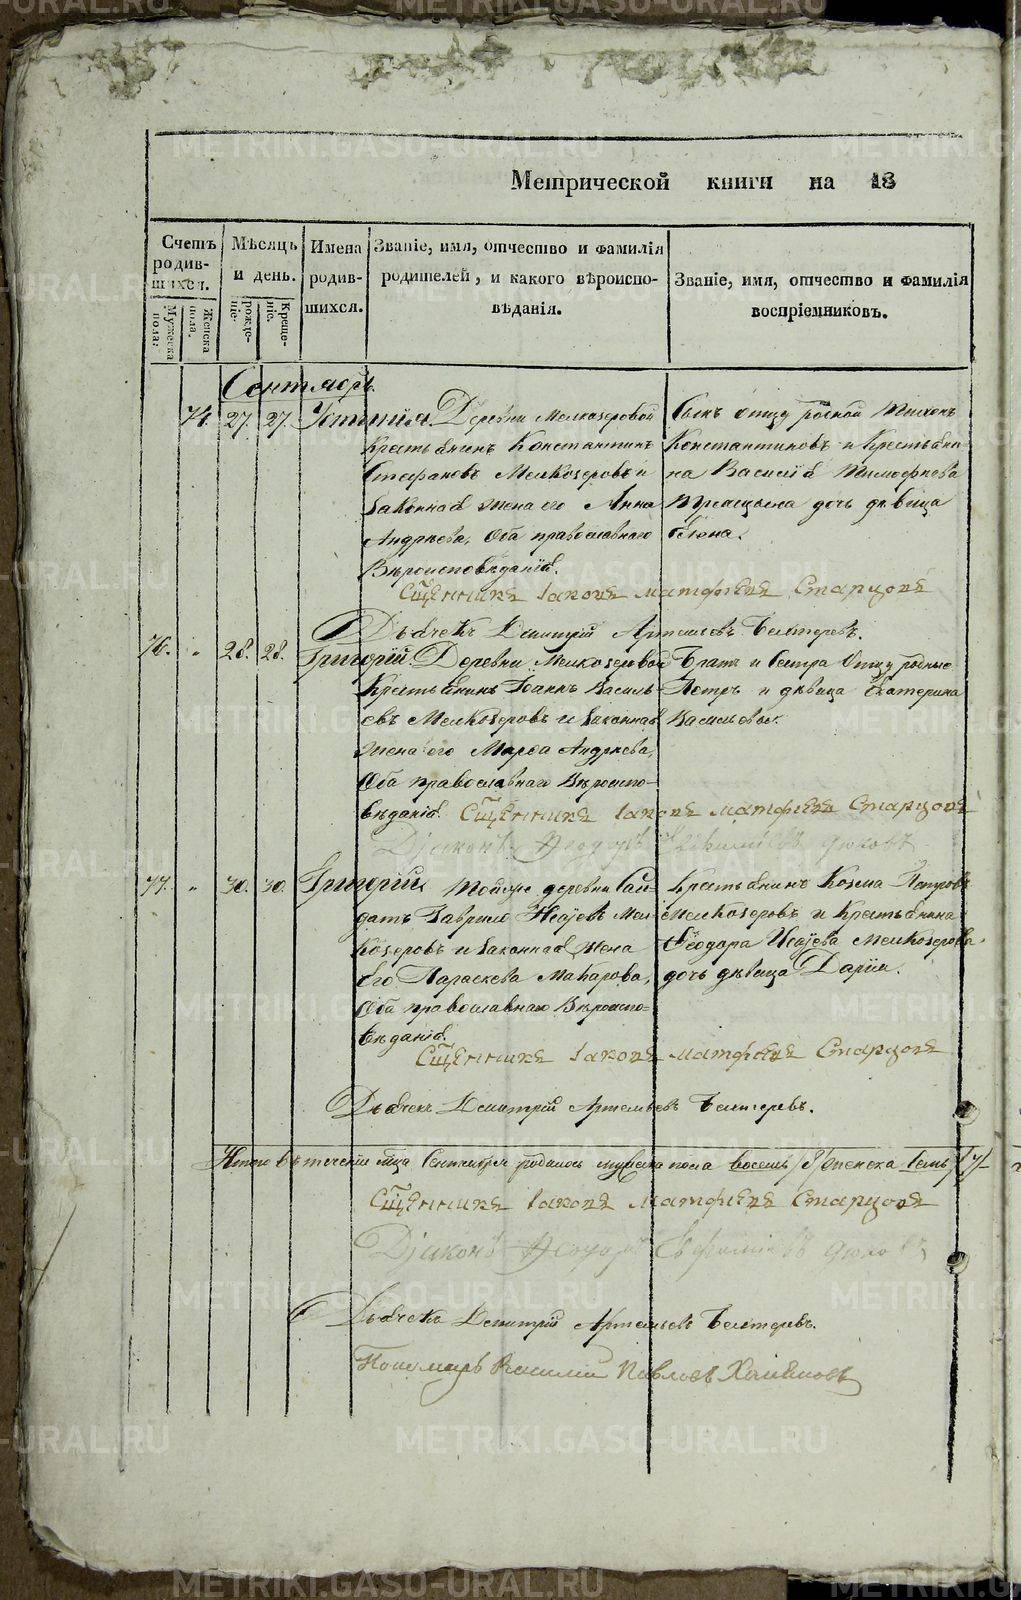 Метрической книги на 18
Счетъ родив-шихся.
Мужеска пола.
Женска пола.
Мѣсяцъ и день.
рожде-ніе.
Креще-ніе.
Имена родив-шихся.
Званіе, имя, отчество и фамилія
родителей, и какого вѣроиспо-
вѣданія.
Званіе, имя, отчество и фамилія
воспріемниковъ.
Сентябрь.
74. 27. 27. Устинія. Деревни Мелкозеровой
Крестьянинъ Константинъ
Стефановъ Мелкозеровъ и
законная жена его Анна
Андрѣева, Оба православнаго
Вѣроисповѣданія.
Сынъ отцу родной Тихонъ
Константиновъ и Крестьяни
на Василія Тимофѣева
дочь дѣвица
Елена.
Сщенникъ Іаковъ Матфѣевъ Старцовъ
Дьячекъ Димитрій Артемьевъ
76. „ 28. 28. Григорій. Деревни Мелкозеровой
Крестьянинъ Іоаннъ Василь-
евъ Мелкозеровъ и законная
жена его Марѳа Андрѣева,
Оба православнаго Вѣроиспо-
вѣданія.
Братъ и Сестра Отцу родные
Петръ и дѣвица Екатерина
Васильевы.
Сщенникъ Іаковъ Матфѣевъ Старцовъ
Діаконъ Ѳеодоръ
77. „ 30. 30. Григорій. Тойже деревни Сол-
датъ Гаврило Исаевъ Мел-
козеровъ и законная жена
Его Параскева Макарова,
Оба православнаго Вѣроиспо-
вѣданія.
Крестьянинъ Козма Петровъ
Мелкозеровъ и Крестьянина
Ѳеодора Исаева Мелкозерова
дочь дѣвица Дарія.
Сщенникъ Іаковъ Матфѣевъ Старцовъ
Дьячекъ Димитрій Артемьевъ
Итого въ теченіи мца Сентября родилось мужеска пола восемь /8/ женска Семь /7/
Сщенникъ Іаковъ Матфѣевъ Старцовъ
Діаконъ Ѳеодоръ
Дьячекъ Димитрій Артемьевъ
Пономарь Василій Павловъ
METRIKI.GASO-URAL.RU